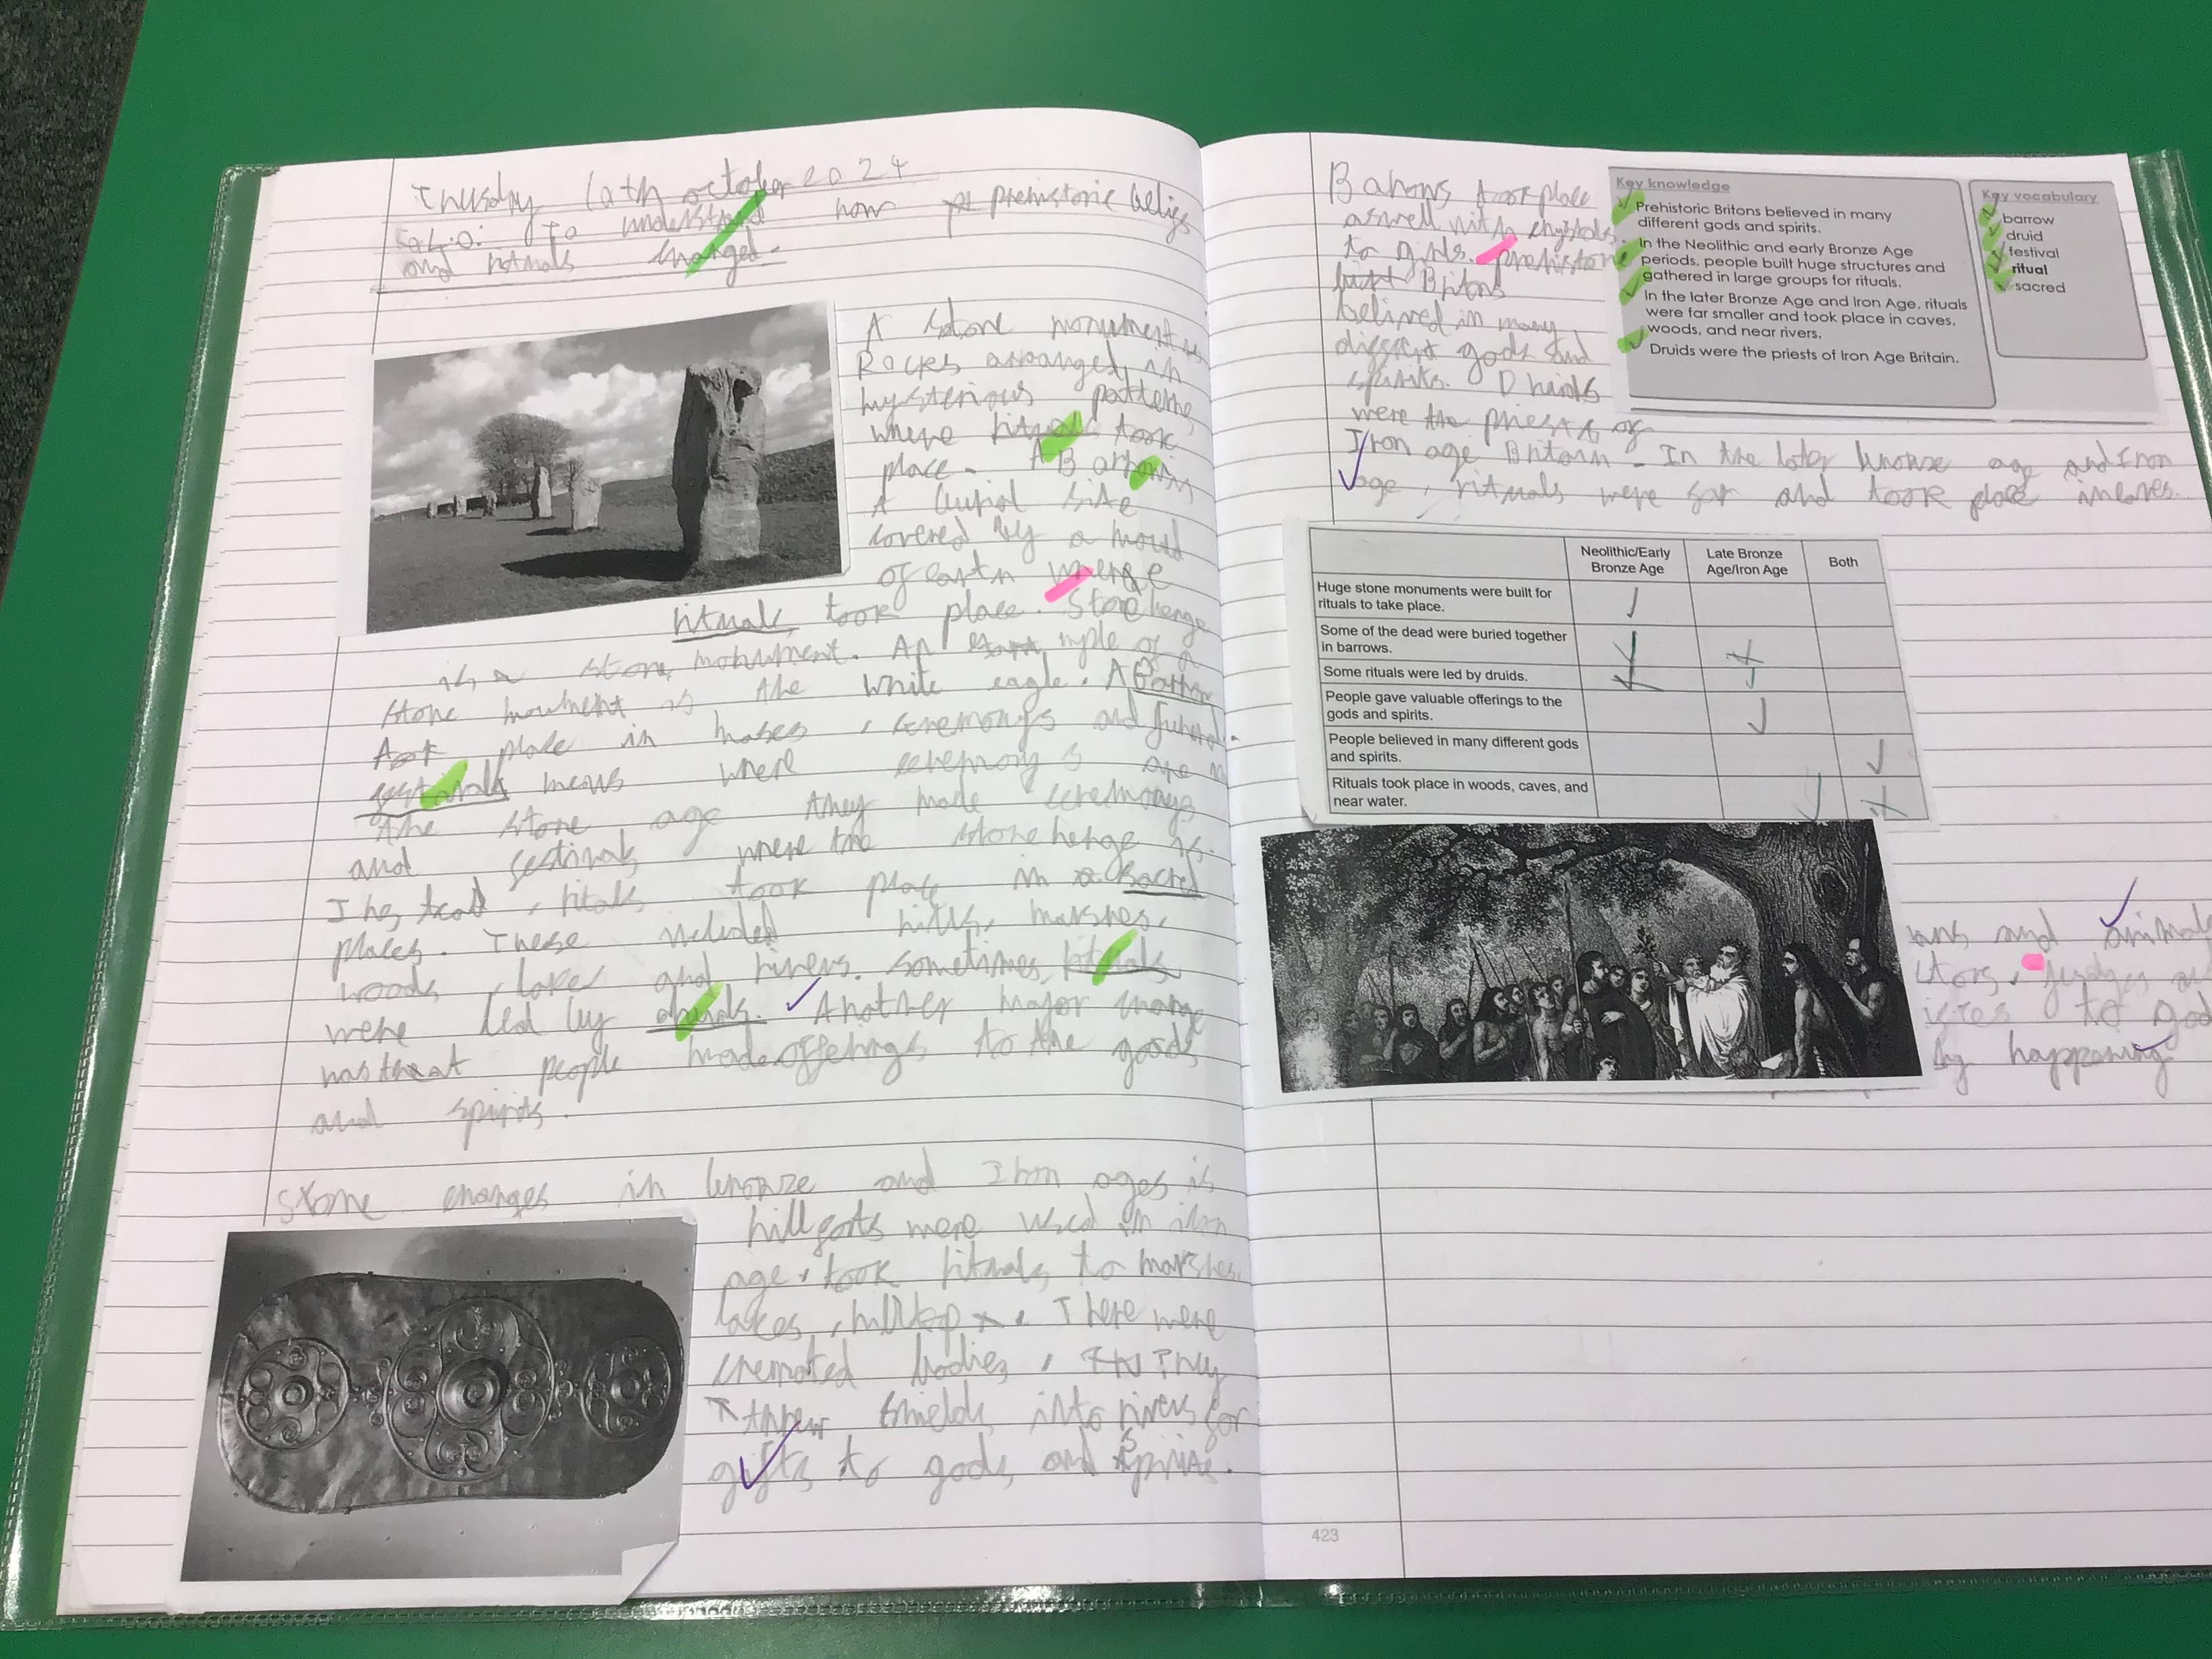 Thusday 10th october 2024
L.O: To understand how prehistoric beliefs
and rituals changed.
A stone monument is
Rocks arranged in
mysterious patterns
where rituals took
place. A Barrow is
A burial site
covered by a mould
of earth where
rituals took place. Stonehenge
is a stone monument. An imple of a
stone monument is the white eagle. A Barrow
took place in , ceremonys and funeral.
festivals means where ceremony s are
the stone age they made ceremonys
and festivals where the stone henge is.
Instead, ritals took place in a sacred
places. These included hills, marshes,
woods, lakes and rivers. Sometimes rituals
were led by druids. Another major change
was that people made offerings to the goods
and spirits.
Stone changes in bronze and Iron ages is
hill forts were used in iron
age, took rituals to marshes,
lakes, hilltop. There were
cremated bodies, They
threw shields into rivers for
gifts to gods and spirits.
Barrows took place
aswell with
to gifts. prehistoric
Britons
belived in many
diffrent gods and
spirits. Druids
were the priests of
Iron age Britain. In the later bronze age and Iron
age, rituals were far and took place in caves.
Key knowledge
Prehistoric Britons believed in many
different gods and spirits.
In the Neolithic and early Bronze Age
periods, people built huge structures and
gathered in large groups for rituals.
In the later Bronze Age and Iron Age, rituals
were far smaller and took place in caves,
woods, and near rivers.
Druids were the priests of Iron Age Britain.
Key vocabulary
barrow
druid
festival
ritual
sacred
Neolithic/Early Bronze Age
Late Bronze Age/Iron Age
Both
Huge stone monuments were built for
rituals to take place.
Some of the dead were buried together
in barrows.
Some rituals were led by druids.
People gave valuable offerings to the
gods and spirits.
People believed in many different gods
and spirits.
Rituals took place in woods, caves, and
near water.
and animal
judges
to god
by happening
423